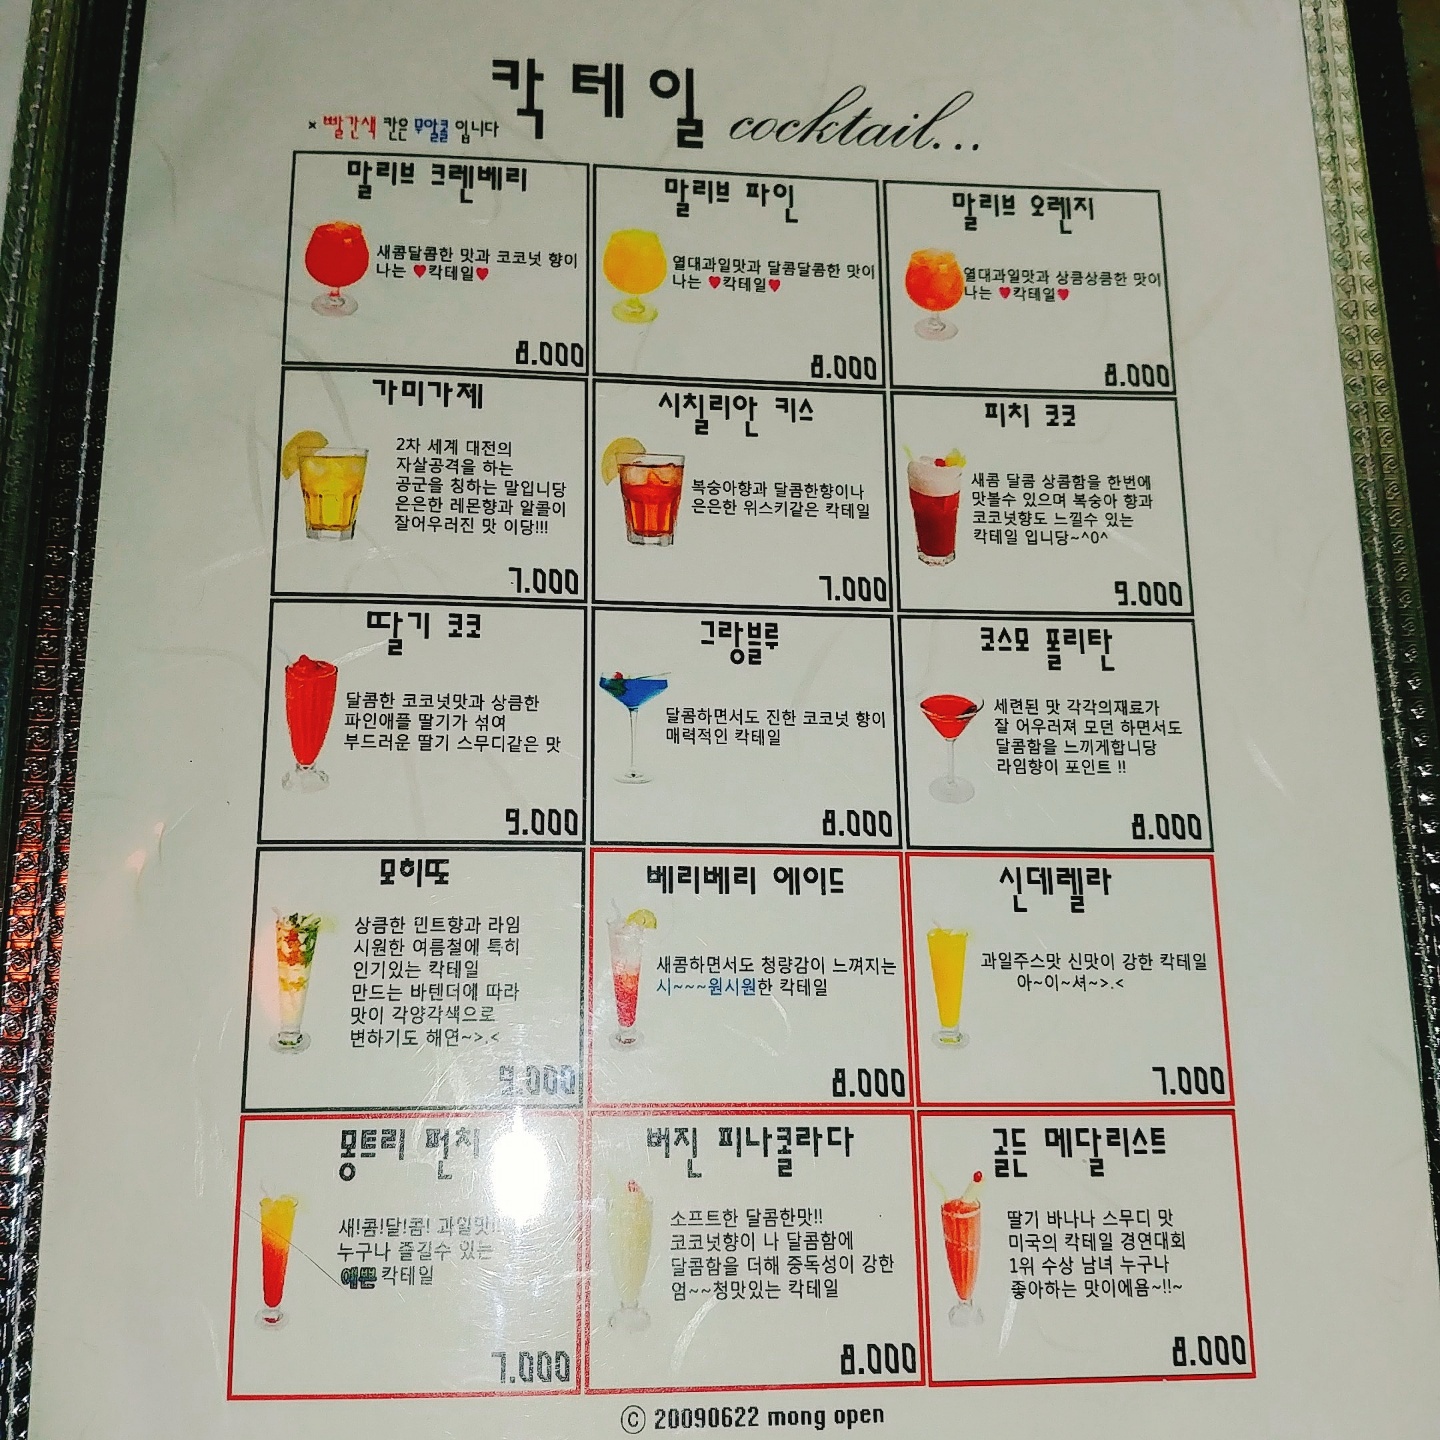 칵테일 cocktail...
× 빨간색 칸은 무알콜 입니다
말리브 크렌베리
새콤달콤한 맛과 코코넛 향이
나는 ♥칵테일♥
8.000
말리브 파인
열대과일맛과 달콤달콤한 맛이
나는 ♥칵테일♥
8.000
말리브 오렌지
열대과일맛과 상콤상콤한 맛이
나는 ♥칵테일♥
8.000
가미가제
2차 세계 대전의
자살공격을 하는
공군을 칭하는 말입니당
은은한 레몬향과 알콜이
잘어우러진 맛 이당!!!
7.000
시칠리안 키스
복숭아향과 달콤한향이나
은은한 위스키같은 칵테일
7.000
피치 코코
새콤 달콤 상콤함을 한번에
맛볼수 있으며 복숭아 향과
코코넛향도 느낄수 있는
칵테일 입니당~^0^
9.000
딸기 코코
달콤한 코코넛맛과 상큼한
파인애플 딸기가 섞여
부드러운 딸기 스무디같은 맛
9.000
그랑블루
달콤하면서도 진한 코코넛 향이
매력적인 칵테일
8.000
코스모 폴리탄
세련된 맛 각각의재료가
잘 어우러져 모던 하면서도
달콤함을 느끼게합니당
라임향이 포인트 !!
8.000
모히또
상큼한 민트향과 라임
시원한 여름철에 특히
인기있는 칵테일
만드는 바텐더에 따라
맛이 각양각색으로
변하기도 해연~>.<
9.000
베리베리 에이드
새콤하면서도 청량감이 느껴지는
시~~~원시원한 칵테일
8.000
신데렐라
과일주스맛 신맛이 강한 칵테일
아~이~셔~>.<
7.000
몽트리 펀치
새!콤!달!콤! 과일맛!!
누구나 즐길수 있는
예쁜 칵테일
7.000
버진 피나콜라다
소프트한 달콤한맛!!
코코넛향이 나 달콤함에
달콤함을 더해 중독성이 강한
엄~~청맛있는 칵테일
8.000
골든 메달리스트
딸기 바나나 스무디 맛
미국의 칵테일 경연대회
1위 수상 남녀 누구나
좋아하는 맛이에욤~!!~
8.000
ⓒ 20090622 mong open